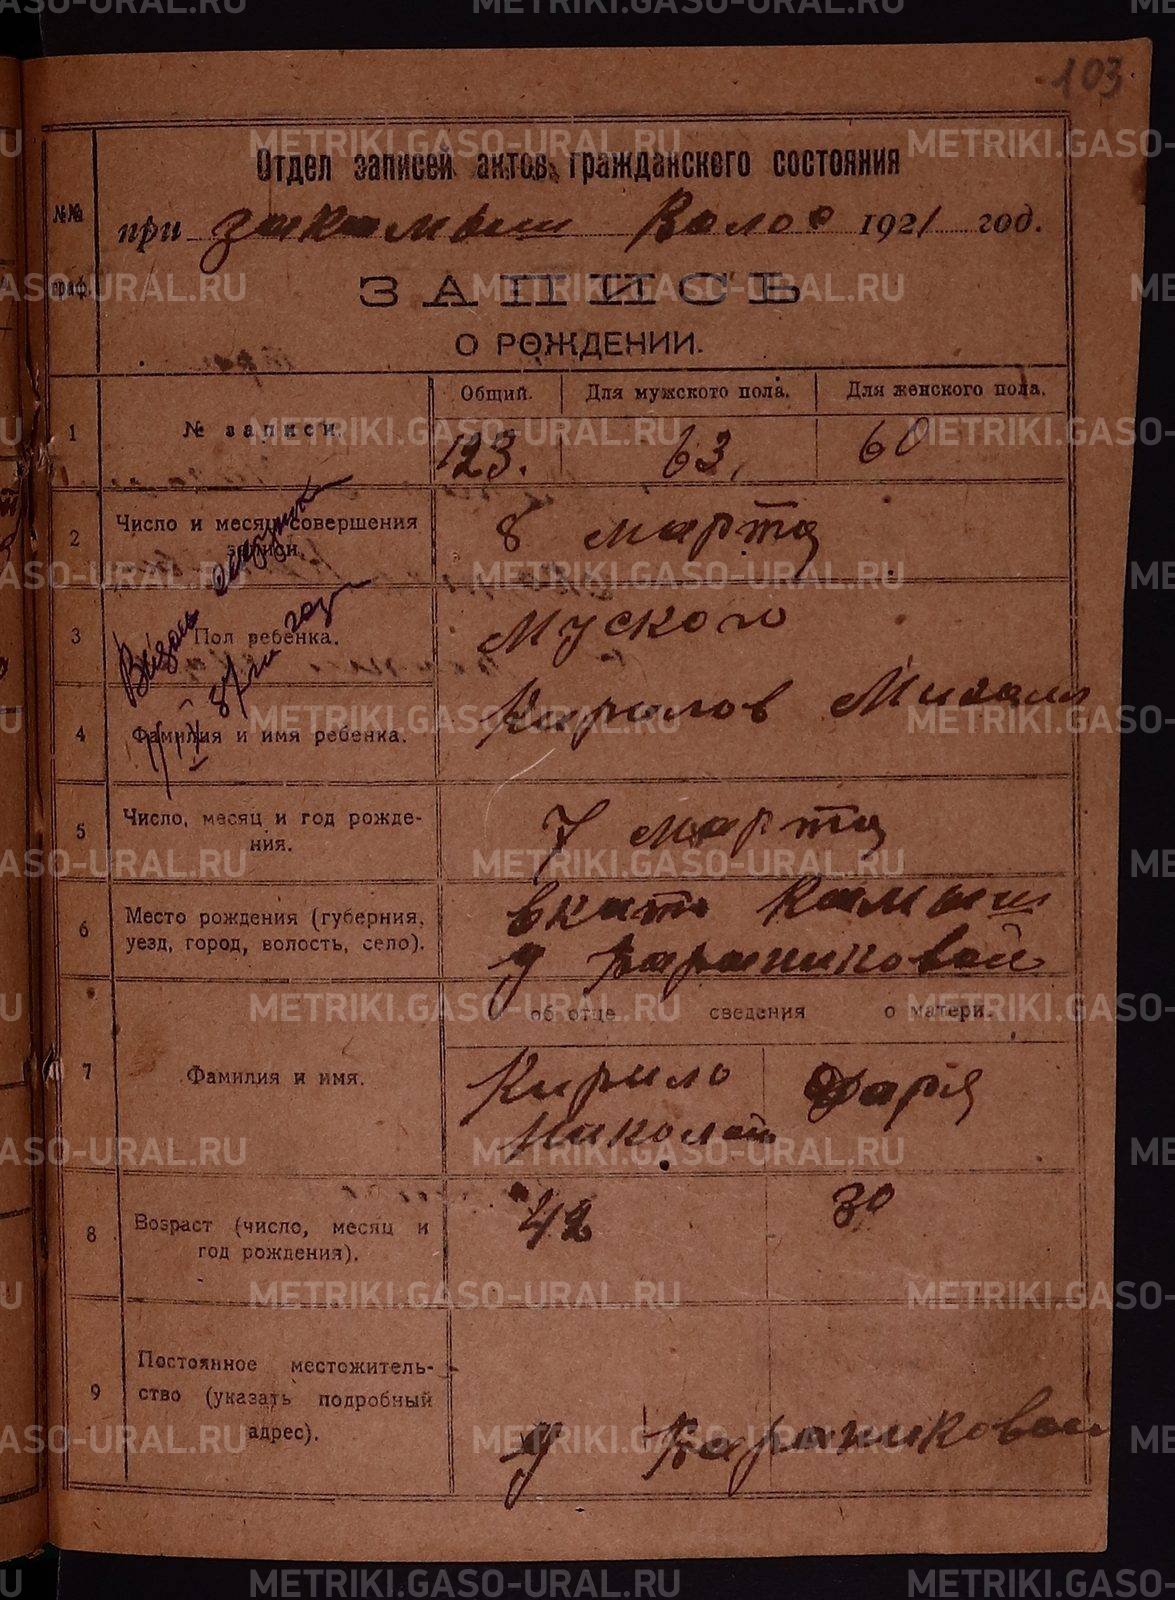 103
Отдел записей актов гражданского состояния
№№ граф.
при закамыш Волос 1921 год.
ЗАПИСЬ
О РОЖДЕНИИ.
Общий. Для мужского пола. Для женского пола.
1 № записи. 123. 63, 60
2 Число и месяц совершения записи. 8 марта
3 Пол ребенка. Муского
4 Фамилия и имя ребенка. Кирилов Михаил
5 Число, месяц и год рождения. 7 марта
6 Место рождения (губерния, уезд, город, волость, село). Камыш
д
об отце сведения о матери.
7 Фамилия и имя. Кирило Дарья
Николай
8 Возраст (число, месяц и год рождения). 42 30
9 Постоянное местожительство (указать подробный адрес).
д
METRIKI.GASO-URAL.RU